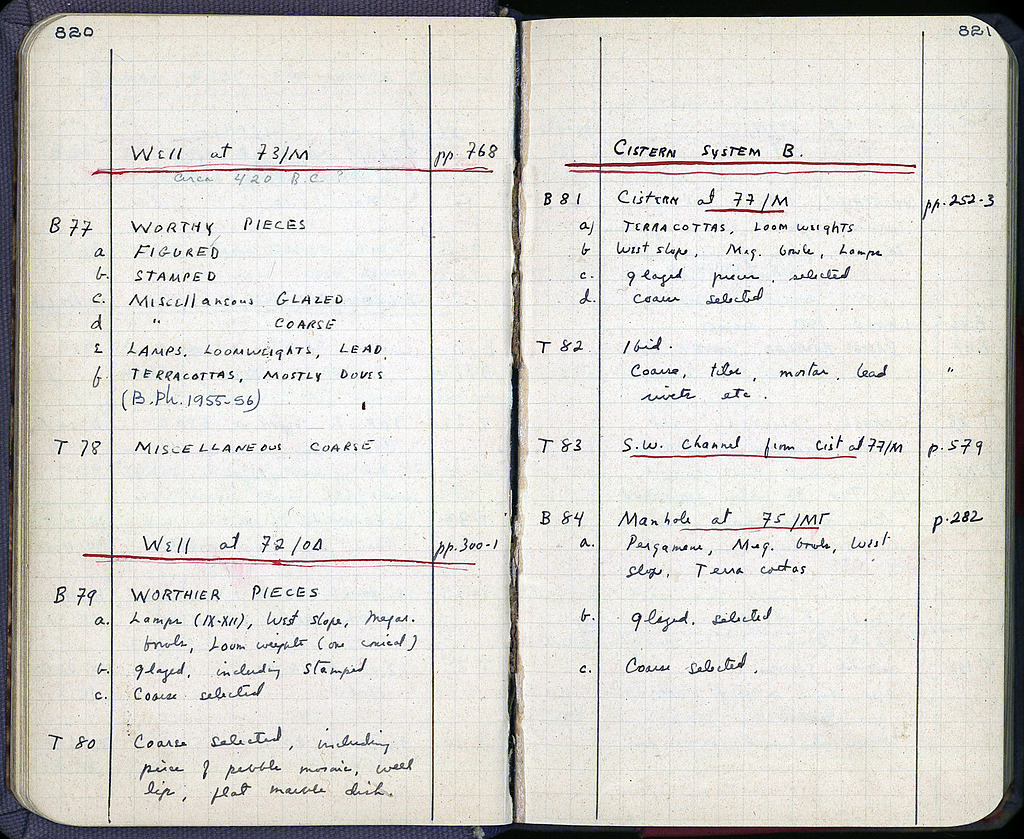 820
Well at 73/M pp. 768
circa 420 B.C. ?
B 77 WORTHY PIECES
a FIGURED
b. STAMPED
c. Miscellaneous GLAZED
d " COARSE
e LAMPS, LOOMWEIGHTS, LEAD.
f. TERRACOTTAS, MOSTLY DOVES
(B.Ph. 1955-56)
T 78 MISCELLANEOUS COARSE
Well at 72/ΟΔ pp. 300-1
B 79 WORTHIER PIECES
a. Lamps (IX-XII), West slope, Megar.
bowls, Loom weights (one conical)
b. glazed, including stamped
c. Coarse selected
T 80 Coarse selected, including
piece of pebble mosaic, well
lip, flat marble dish.
821
CISTERN SYSTEM B.
B 81 Cistern at 77/M pp. 252-3
a) TERRACOTTAS, LOOM WEIGHTS
b West slope, Meg. bowls, Lamps
c. glazed pieces selected
d. coarse selected
T 82 Ibid.
Coarse, tiles, mortar, lead "
rivets etc.
T 83 S.W. Channel from Cist at 77/M p. 579
B 84 Manhole at 75/ΜΓ p. 282
a. Pergamene, Meg. bowls, West
slope, Terra cottas
b. glazed, selected
c. Coarse selected.